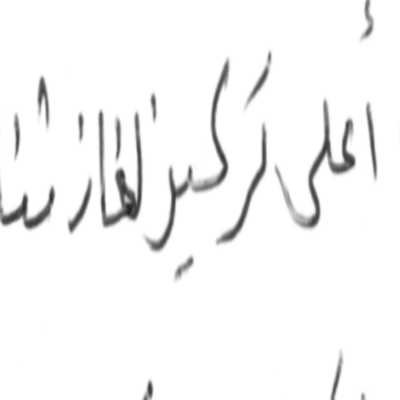 أعلى تركيز لغاز ثنا